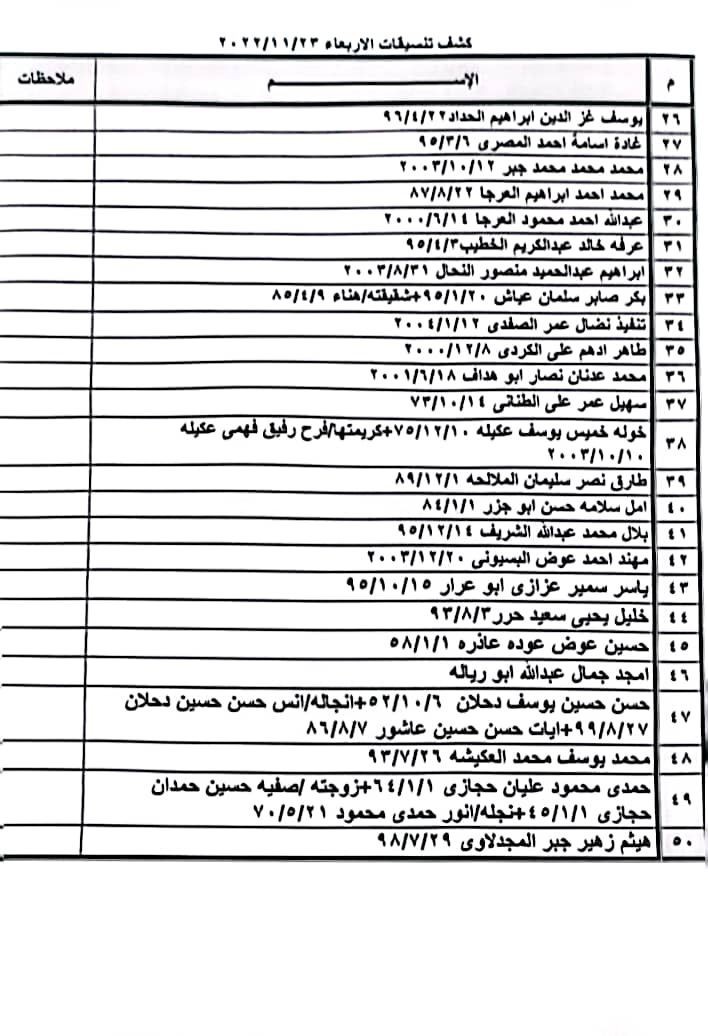 كشف تنسيقات الاربعاء ٢٠٢٢/١١/٢٣
م الاســـــــم ملاحظات
٢٦ يوسف غز الدين ابراهيم الحداد٩٦/٤/٢٢
٢٧ غادة اسامة احمد المصرى ٩٥/٣/٦
٢٨ محمد محمد محمد جبر ٢٠٠٣/١٠/١٢
٢٩ محمد احمد ابراهيم العرجا ٨٧/٨/٢٢
٣٠ عبدالله احمد محمود العرجا ٢٠٠٠/٦/١٤
٣١ عرفه خالد عبدالكريم الخطيب٩٥/٤/٣
٣٢ ابراهيم عبدالحميد منصور النحال ٢٠٠٣/٨/٣١
٣٣ بكر صابر سلمان عياش ٩٥/١/٢٠+شقيقته/هناء ٨٥/٤/٩
٣٤ تنفيذ نضال عمر الصفدى ٢٠٠٤/١/١٢
٣٥ طاهر ادهم على الكردى ٢٠٠٠/١٢/٨
٣٦ محمد عدنان نصار ابو هداف ٢٠٠١/٦/١٨
٣٧ سهيل عمر على الطنانى ٧٣/١٠/١٤
٣٨ خوله خميس يوسف عكيله ٧٥/١٢/١٠+كريمتها/فرح رفيق فهمى عكيله
٢٠٠٣/١٠/١٠
٣٩ طارق نصر سليمان الملالحه ٨٩/١٢/١
٤٠ امل سلامه حسن ابو جزر ٨٤/١/١
٤١ بلال محمد عبدالله الشريف ٩٥/١٢/١٤
٤٢ مهند احمد عوض البسيونى ٢٠٠٣/١٢/٢٠
٤٣ ياسر سمير عزازى ابو عرار ٩٥/١٠/١٥
٤٤ خليل يحيى سعيد حرر٩٣/٨/٣
٤٥ حسين عوض عوده عاذره ٥٨/١/١
٤٦ امجد جمال عبدالله ابو رياله
٤٧ حسن حسين يوسف دحلان ٥٢/١٠/٦+انجاله/انس حسن حسين دحلان
٩٩/٨/٢٧+ايات حسن حسين عاشور ٨٦/٨/٧
٤٨ محمد يوسف محمد العكيشه ٩٣/٧/٢٦
٤٩ حمدى محمود عليان حجازى ٦٤/١/١+زوجته /صفيه حسين حمدان
حجازى ٤٥/١/١+نجله/انور حمدى محمود ٧٠/٥/٢١
٥٠ هيثم زهير جبر المجدلاوى ٩٨/٧/٢٩